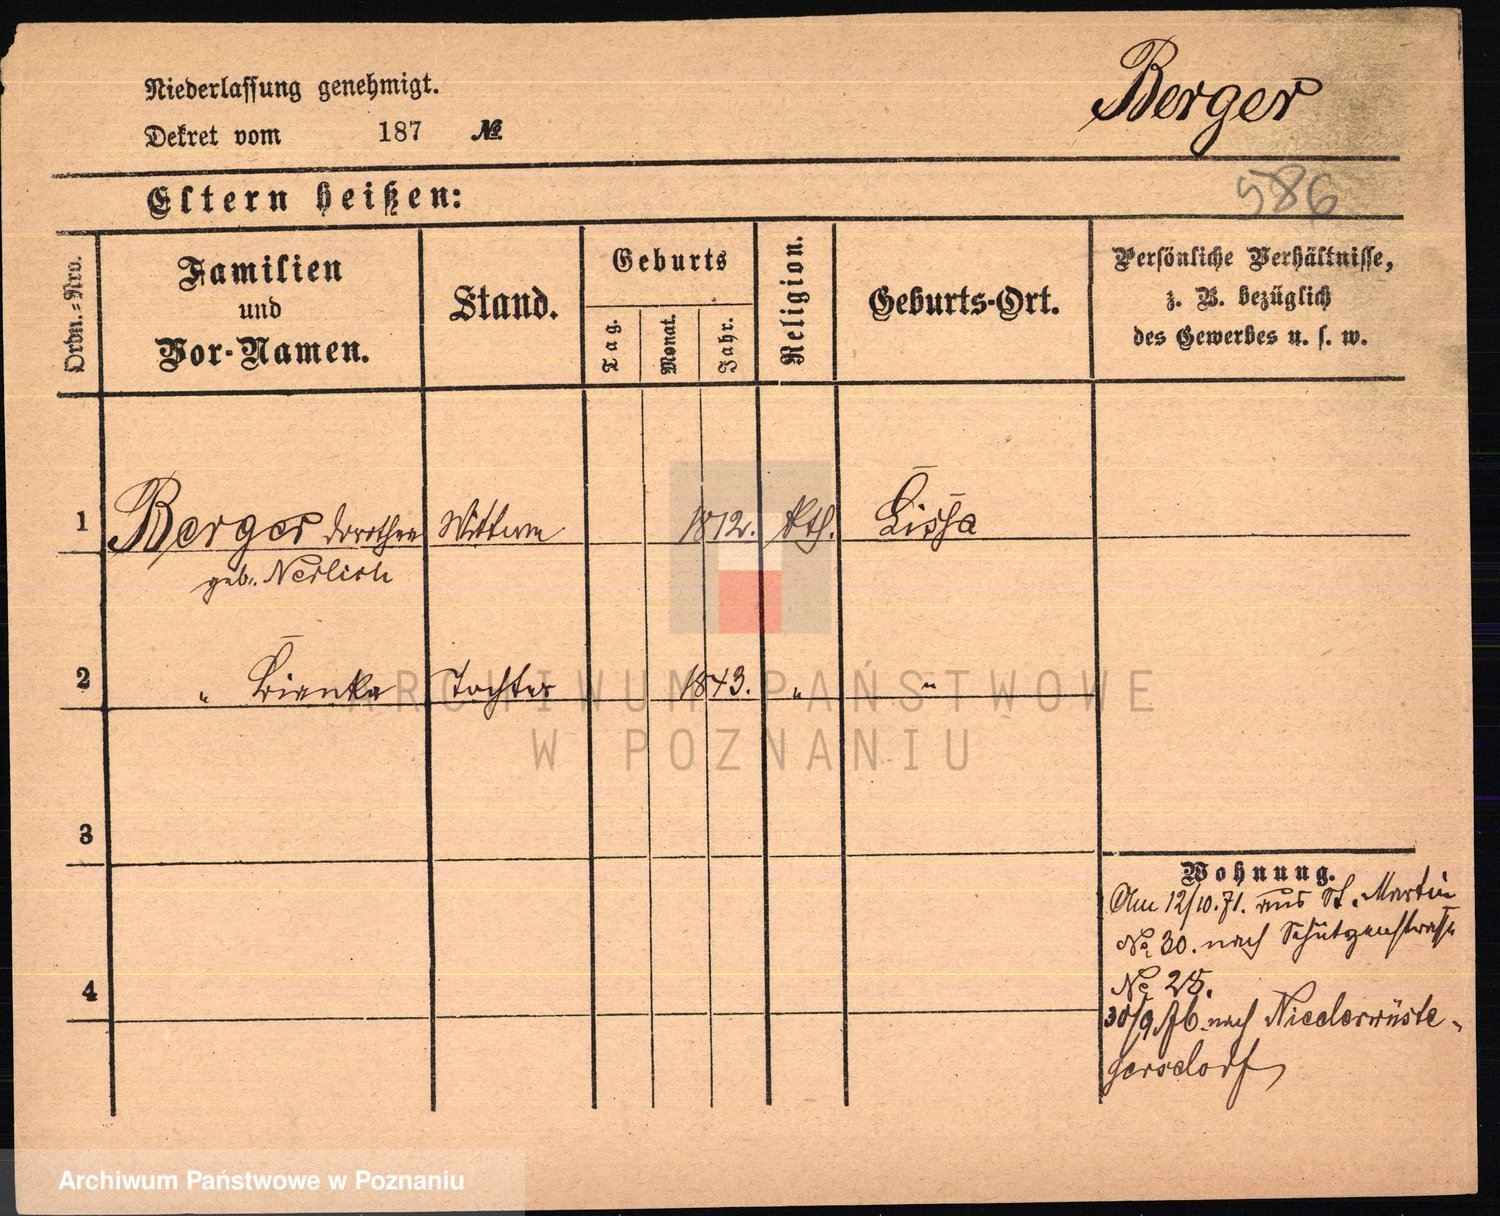 Niederlassung genehmigt.
Dekret vom 187 №
Berger
586
Eltern heißen:
Ordn.=Nro.
Familien
und
Vor-Namen.
Stand.
Geburts
Tag.
Monat.
Jahr.
Religion.
Geburts-Ort.
Persönliche Verhältnisse,
z. B. bezüglich
des Gewerbes u. s. w.
1 Berger Dorothea Wittwe 1812. kth. Lissa
geb. Nerlich
2 " Bianka Tochter 1843. " "
3
4
Wohnung.
Am 12/10.71. aus St. Martin
No 30. nach Schützenstraße
No 25.
30/9 76. nach Niederwüste-
gersdorf
ARCHIWUM PAŃSTWOWE
W POZNANIU
Archiwum Państwowe w Poznaniu